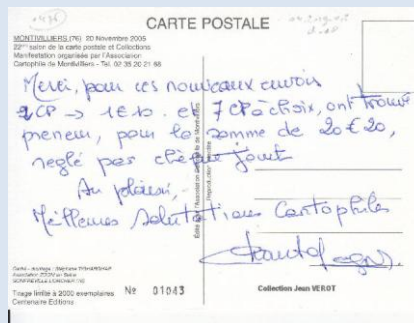 CARTE POSTALE
MONTIVILLIERS (76) 20 Novembre 2005
22ème salon de la carte postale et Collections
Manifestation organisée par l'Association
Cartophile de Montivilliers - Tel. 02 35 20 21 66
Merci, pour ces nouveaux envois
2 CP → 1€10. et 7 CP à choix, ont trouvé
preneur, pour la somme de 20€20,
reglé par chèque joint
Au plaisir,
Meilleures Salutations Cartophiles
Tirage limité à 2000 exemplaires
Centenaire Editions
Nº 01043
Collection Jean VEROT